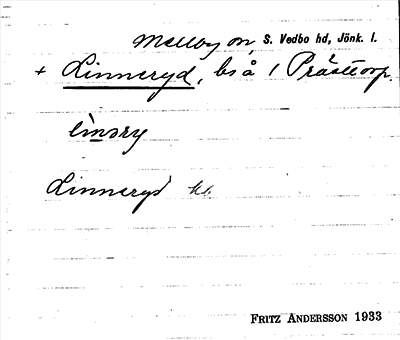 Mellby sn, S. Vedbo hd, Jönk. l.
+ Linneryd, bs å / Prästtorp.
linəry
Linneryd kt.
FRITZ ANDERSSON 1933